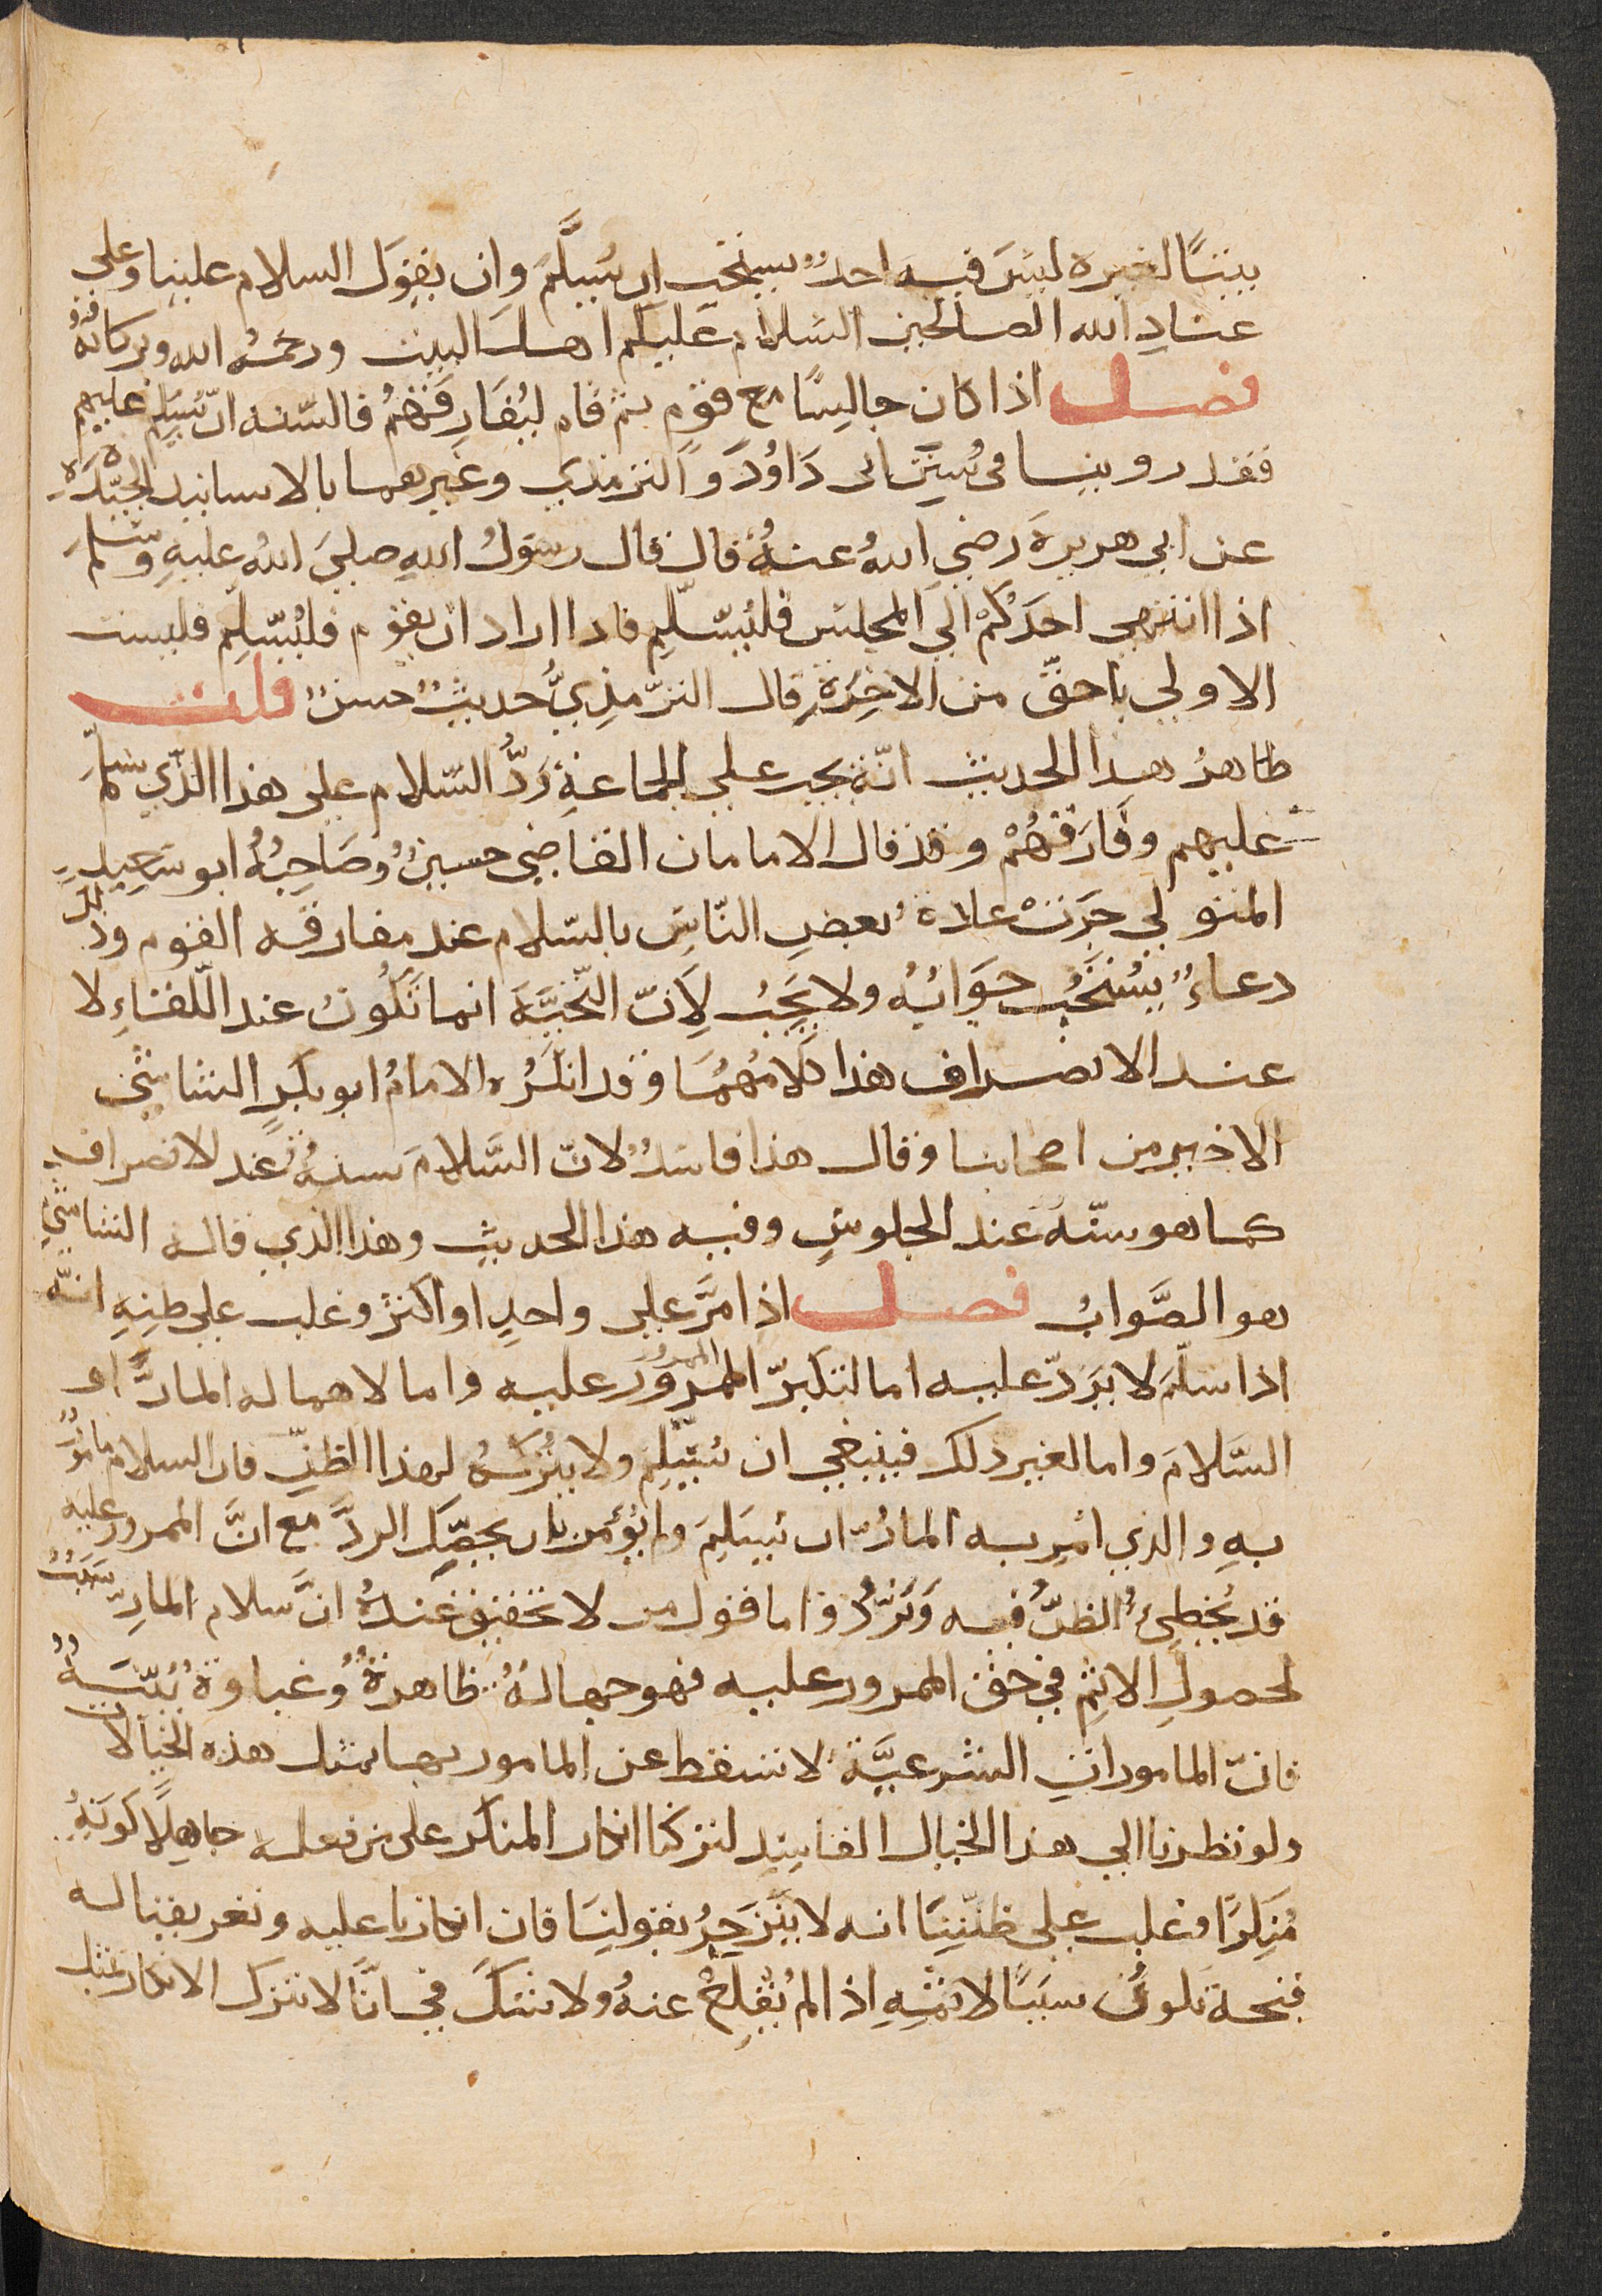 بيتًا لغيره ليسَ فيه احدٌ يستحب ان يُسلَّمَ وان يقوَل السلام علينا وعلى
عباد الله الصالحين السّلام عليكم اهل البيت ورحمة الله وبركاته
فصل اذا كان جالِسًا مع قوْمٍ ثم قام ليُفَارِقَهُمْ فالسّنه ان يُسَلِم عليهم
فقد روينا فى سُنَنِ ابى دَاوُدَ وَالترمذي وغيرهما بالاسانيد الجيّدَةِ
عن ابي هريرةَ رضي اللهُ عنهُ قال قال رسوَلُ اللهِ صلي اللهُ عليهِ وسَلمَ
اذا انتهى احَدُكمْ الي المجلسَ فليُسَلّم فاذا اراد ان يقوم فليُسَلِّم فليست
الاولي باحقَّ من الاخِرَةِ قال الترّمذِيُّ حديثٌ حسنٌ قلت
ظاهرُ هذا الحديث انّهُ يجب علي الجماعةِ رَدُّ السّلام على هذا الذّي سَلّمَ
عليهم وفَارَقهُمْ وقد قال الامامان القاضى حسينٌ وصَاحِبُهُ ابو سَعِيدٍ
المتولي جرَتْ عادةُ بعضِ النّاسِ بالسّلام عند مفارقه القوم وذلك
دعاءٌ يُسْتحَبُ جوَابُهُ ولا يَجِبُ لِاَنّ التّحيَّهَ انما تَكُونُ عند اللّقاءِ لا
عند الانصراف هذا كلامُهُمَا وقد انكرُه الامامُ ابو بكرٍ الشاشيُّ
الاخير من اصحابنا وقال هذا فاسدٌ لانّ السَّلامَ سنهٌ عند لانصراف
كما هو سنّهٌ عند الجلوسِ وفيه هذا الحديث وهذا الذي قاله الشاشيُّ
هو الصَّوابُ فصل اذا مَرَّ على واحدٍ او اكثر وغلب على ظنِهِ انّهُ
اذا سلّمَ لا يَرَدّ عليه اما لتكبرّ الممرُوْرَ عليه واما لاهماله المارَّ او
السّلامَ واما لغير ذلك فينبغي ان يُسَلّمَ ولا يتُركهُ لهذا الظنِّ فان السلام مامُوْرٌ
بهِ والذي امِرِ به المارُّ ان يُسَلِمَ ولم يُؤمر بان يحصِّلَ الردَّ مع انَّ الممرور عليه
قد يُخطِئُ الظنُّ فيه وَيَرُدُّ واما قول من لا تحقيق عنْدهُ انَّ سلام المارِّ سَبَبٌ
لحصولِ الاثمِ في حق الممرور عليه فهو جهالةٌ ظاهرةٌ وغباوةٌ بَيّنَةٌ
فانّ الماموراتِ الشرعيَّة لا تسقط عن المامور بها بمثل هذه الخيالات
ولو نظرنا الي هذا الخيال الفاسِدِ لتركنا انكار المنكر على من فعله جاهِلًا كوَنهِ
مُنكِرًا وغلب على ظنّنَا انه لا ينزَجِرُ بقولِنَا فان انكارنا عليه وتعريفنا له
قبحهَ يكونُ سبَبًا لاثمِهِ اذا لم يُقْلِعْ عنهُ ولا شكّ في انَّا لا نترك الانكار بمثل